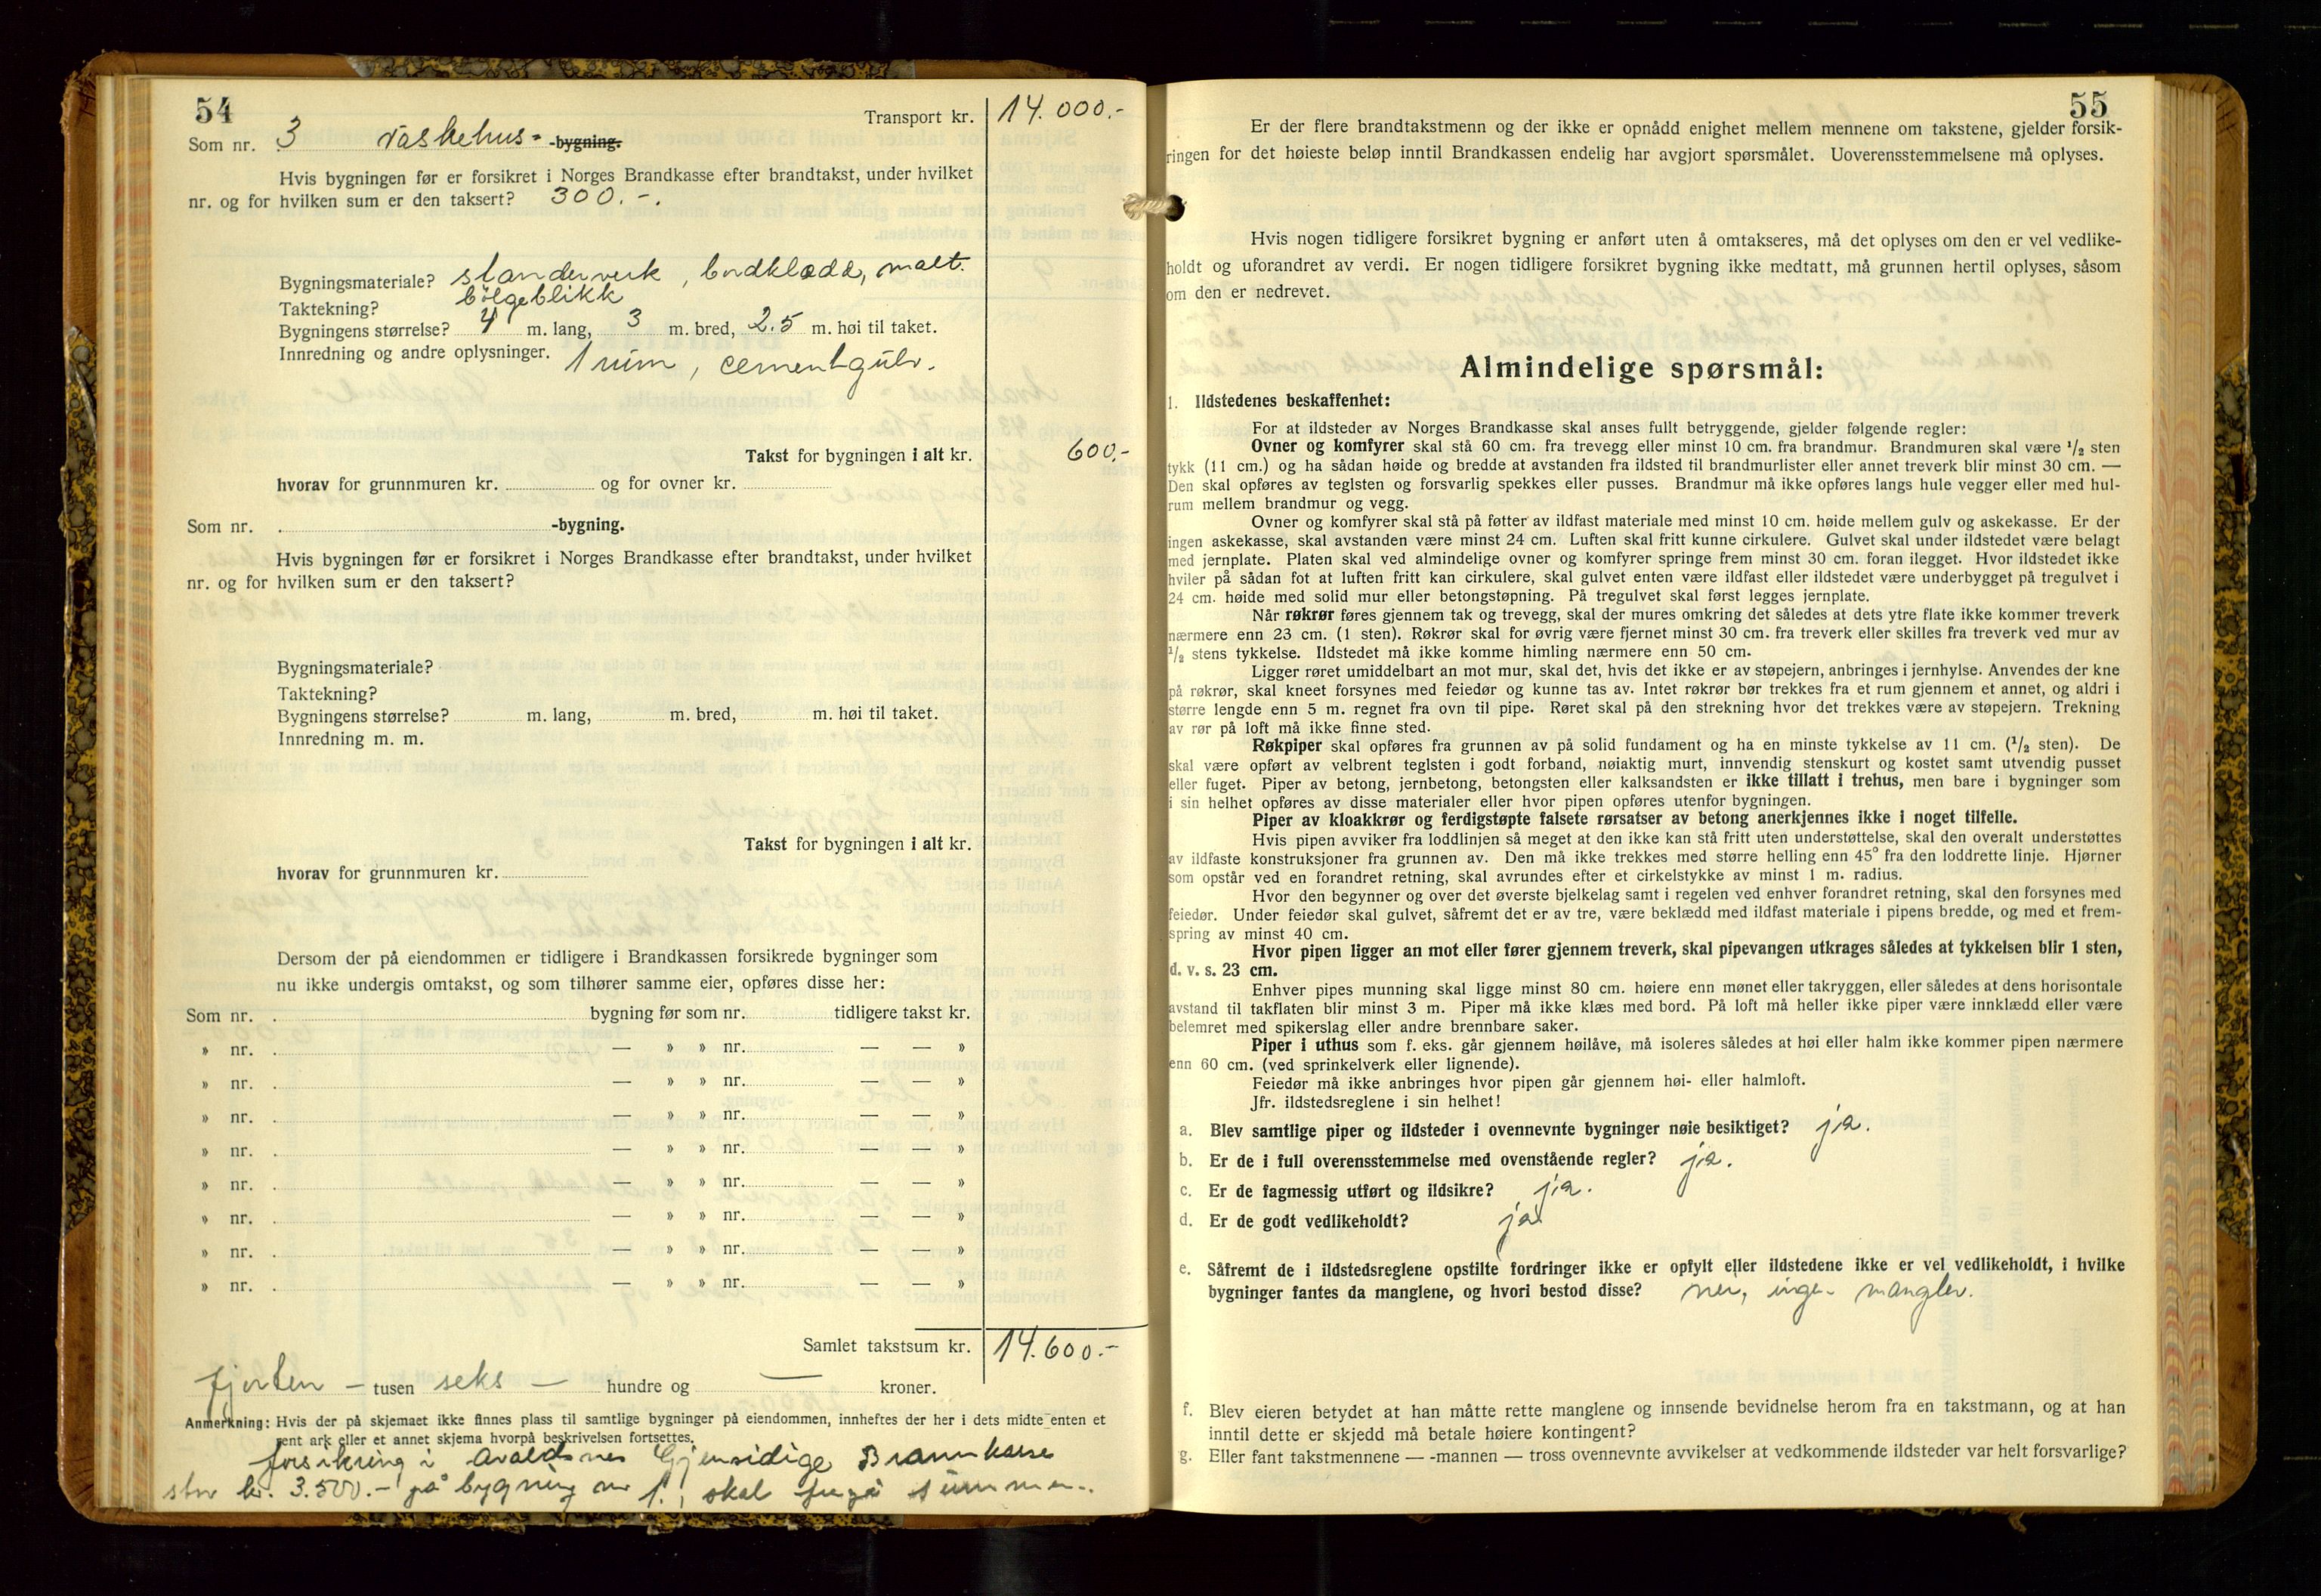 54
Transport kr. 14.000.-
Som nr. 3 vaskehus- -bygning.
Hvis bygningen før er forsikret i Norges Brandkasse efter brandtakst, under hvilket
nr. og for hvilken sum er den taksert? 300.-.
Bygningsmateriale? standerverk, bordklædd, malt.
Taktekning? bølgeblikk
Bygningens størrelse? 4 m. lang, 3 m. bred, 2.5 m. høi til taket.
Innredning og andre oplysninger. 1 rum, cementgulv.
Takst for bygningen i alt kr. 600.-
hvorav for grunnmuren kr. og for ovner kr.
Som nr. -bygning.
Hvis bygningen før er forsikret i Norges Brandkasse efter brandtakst, under hvilket
nr. og for hvilken sum er den taksert?
Bygningsmateriale?
Taktekning?
Bygningens størrelse? m. lang, m. bred, m. høi til taket.
Innredning m. m.
Takst for bygningen i alt kr.
hvorav for grunnmuren kr.
Dersom der på eiendommen er tidligere i Brandkassen forsikrede bygninger som
nu ikke undergis omtakst, og som tilhører samme eier, opføres disse her:
Som nr. bygning før som nr. tidligere takst kr.
» nr. — » » nr. — — »
» nr. — » » nr. — — »
» nr. — » » nr. — — »
» nr. — » » nr. — — »
» nr. — » » nr. — — »
» nr. — » » nr. — — »
» nr. — » » nr. — — »
» nr. — » » nr. — — »
Samlet takstsum kr. 14.600.-
fjorten — tusen seks — hundre og — kroner.
Anmerkning: Hvis der på skjemaet ikke finnes plass til samtlige bygninger på eiendommen, innheftes der her i dets midte enten et
rent ark eller et annet skjema hvorpå beskrivelsen fortsettes.
forsikring i Avaldsnes Gjensidige Brannkasse
stor kr. 3.500.- på bygning nr 1., skal fragå summen.
55
Er der flere brandtakstmenn og der ikke er opnådd enighet mellem mennene om takstene, gjelder forsik-
ringen for det høieste beløp inntil Brandkassen endelig har avgjort spørsmålet. Uoverensstemmelsene må oplyses.
Hvis nogen tidligere forsikret bygning er anført uten å omtakseres, må det oplyses om den er vel vedlike-
holdt og uforandret av verdi. Er nogen tidligere forsikret bygning ikke medtatt, må grunnen hertil oplyses, såsom
om den er nedrevet.
Almindelige spørsmål:
1. Ildstedenes beskaffenhet:
For at ildsteder av Norges Brandkasse skal anses fullt betryggende, gjelder følgende regler:
Ovner og komfyrer skal stå 60 cm. fra trevegg eller minst 10 cm. fra brandmur. Brandmuren skal være 1/2 sten
tykk (11 cm.) og ha sådan høide og bredde at avstanden fra ildsted til brandmurlister eller annet treverk blir minst 30 cm. —
Den skal opføres av teglsten og forsvarlig spekkes eller pusses. Brandmur må ikke opføres langs hule vegger eller med hul-
rum mellem brandmur og vegg.
Ovner og komfyrer skal stå på føtter av ildfast materiale med minst 10 cm. høide mellem gulv og askekasse. Er der
ingen askekasse, skal avstanden være minst 24 cm. Luften skal fritt kunne cirkulere. Gulvet skal under ildstedet være belagt
med jernplate. Platen skal ved almindelige ovner og komfyrer springe frem minst 30 cm. foran ilegget. Hvor ildstedet ikke
hviler på sådan fot at luften fritt kan cirkulere, skal gulvet enten være ildfast eller ildstedet være underbygget på tregulvet i
24 cm. høide med solid mur eller betongstøpning. På tregulvet skal først legges jernplate.
Når røkrør føres gjennem tak og trevegg, skal der mures omkring det således at dets ytre flate ikke kommer treverk
nærmere enn 23 cm. (1 sten). Røkrør skal for øvrig være fjernet minst 30 cm. fra treverk eller skilles fra treverk ved mur av
1/2 stens tykkelse. Ildstedet må ikke komme himling nærmere enn 50 cm.
Ligger røret umiddelbart an mot mur, skal det, hvis det ikke er av støpejern, anbringes i jernhylse. Anvendes der kne
på røkrør, skal kneet forsynes med feiedør og kunne tas av. Intet røkrør bør trekkes fra et rum gjennem et annet, og aldri i
større lengde enn 5 m. regnet fra ovn til pipe. Røret skal på den strekning hvor det trekkes være av støpejern. Trekning
av rør på loft må ikke finne sted.
Røkpiper skal opføres fra grunnen av på solid fundament og ha en minste tykkelse av 11 cm. (1/2 sten). De
skal være opført av velbrent teglsten i godt forband, nøiaktig murt, innvendig stenskurt og kostet samt utvendig pusset
eller fuget. Piper av betong, jernbetong, betongsten eller kalksandsten er ikke tillatt i trehus, men bare i bygninger som
i sin helhet opføres av disse materialer eller hvor pipen opføres utenfor bygningen.
Piper av kloakkrør og ferdigstøpte falsete rørsatser av betong anerkjennes ikke i noget tilfelle.
Hvis pipen avviker fra loddlinjen så meget at den ikke kan stå fritt uten understøttelse, skal den overalt understøttes
av ildfaste konstruksjoner fra grunnen av. Den må ikke trekkes med større helling enn 45° fra den loddrette linje. Hjørner
som opstår ved en forandret retning, skal avrundes efter et cirkelstykke av minst 1 m. radius.
Hvor den begynner og over det øverste bjelkelag samt i regelen ved enhver forandret retning, skal den forsynes med
feiedør. Under feiedør skal gulvet, såfremt det er av tre, være beklædd med ildfast materiale i pipens bredde, og med et frem-
spring av minst 40 cm.
Hvor pipen ligger an mot eller fører gjennem treverk, skal pipevangen utkrages således at tykkelsen blir 1 sten,
d. v. s. 23 cm.
Enhver pipes munning skal ligge minst 80 cm. høiere enn mønet eller takryggen, eller således at dens horisontale
avstand til takflaten blir minst 3 m. Piper må ikke klæs med bord. På loft må heller ikke piper være innklædd eller være
belemret med spikerslag eller andre brennbare saker.
Piper i uthus som f. eks. går gjennem høilåve, må isoleres således at høi eller halm ikke kommer pipen nærmere
enn 60 cm. (ved sprinkelverk eller lignende).
Feiedør må ikke anbringes hvor pipen går gjennem høi- eller halmloft.
Jfr. ildstedsreglene i sin helhet!
a. Blev samtlige piper og ildsteder i ovennevnte bygninger nøie besiktiget? ja.
b. Er de i full overensstemmelse med ovenstående regler? ja.
c. Er de fagmessig utført og ildsikre? ja.
d. Er de godt vedlikeholdt? ja
e. Såfremt de i ildstedsreglene opstilte fordringer ikke er opfylt eller ildstedene ikke er vel vedlikeholdt, i hvilke
bygninger fantes da manglene, og hvori bestod disse? nei, ingen mangler.
f. Blev eieren betydet at han måtte rette manglene og innsende bevidnelse herom fra en takstmann, og at han
inntil dette er skjedd må betale høiere kontingent?
g. Eller fant takstmennene — -mannen — tross ovennevnte avvikelser at vedkommende ildsteder var helt forsvarlige?